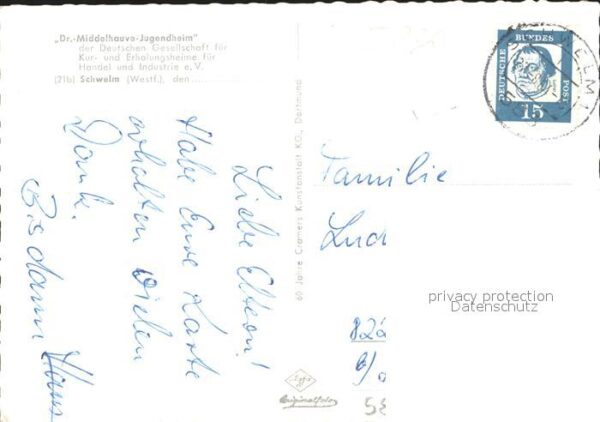 „Dr.-Middelhauve-Jugendheim"
der Deutschen Gesellschaft für
Kur- und Erholungsheime für
Handel und Industrie e. V.
(21b) Schwelm (Westf.), den
Liebe Eltern!
Habe Eure Karte
erhalten Vielen
Dank.
Bis dann Hans
60 Jahre Cramers Kunstanstalt KG., Dortmund
Agfa
Originalfoto
DEUTSCHE
BUNDES
POST
15
SCHWELM
Familie
Lud
privacy protection
Datenschutz